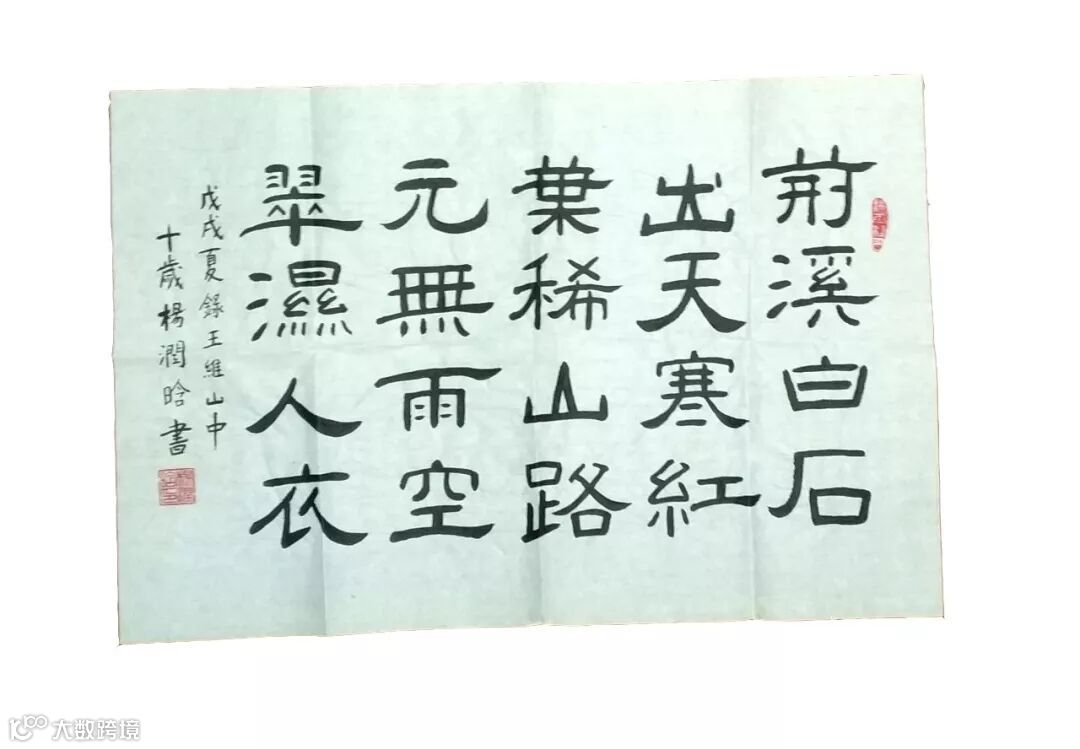 荊溪白石
出天寒紅
葉稀山路
元無雨空
翠濕人衣
戊戌夏錄王維山中
十歲楊潤晗書
大数跨境